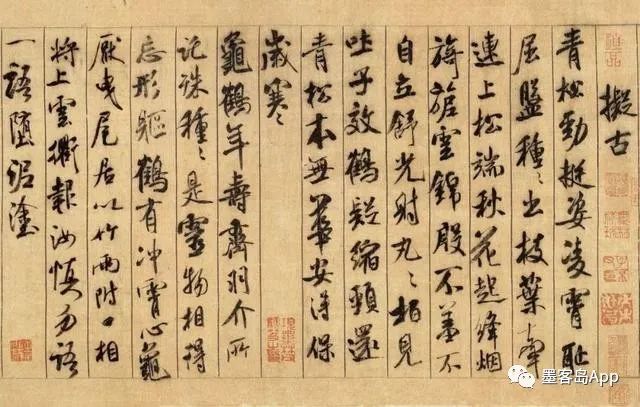 擬古
青松勁挺姿凌霄恥
屈盤種〻出枝葉牽
連上松端秋花起絳烟
旖旎雲錦殷不羞不
自立舒光射丸〻柏見
吐子效鶴疑縮頸還
青松本無華安得保
歲寒
龜鶴年壽齊羽介所
託殊種〻是靈物相得
忘形軀鶴有冲霄心龜
厭曳尾居以竹兩附口相
將上雲衢報汝慎勿語
一語墮泥塗
墨客岛App